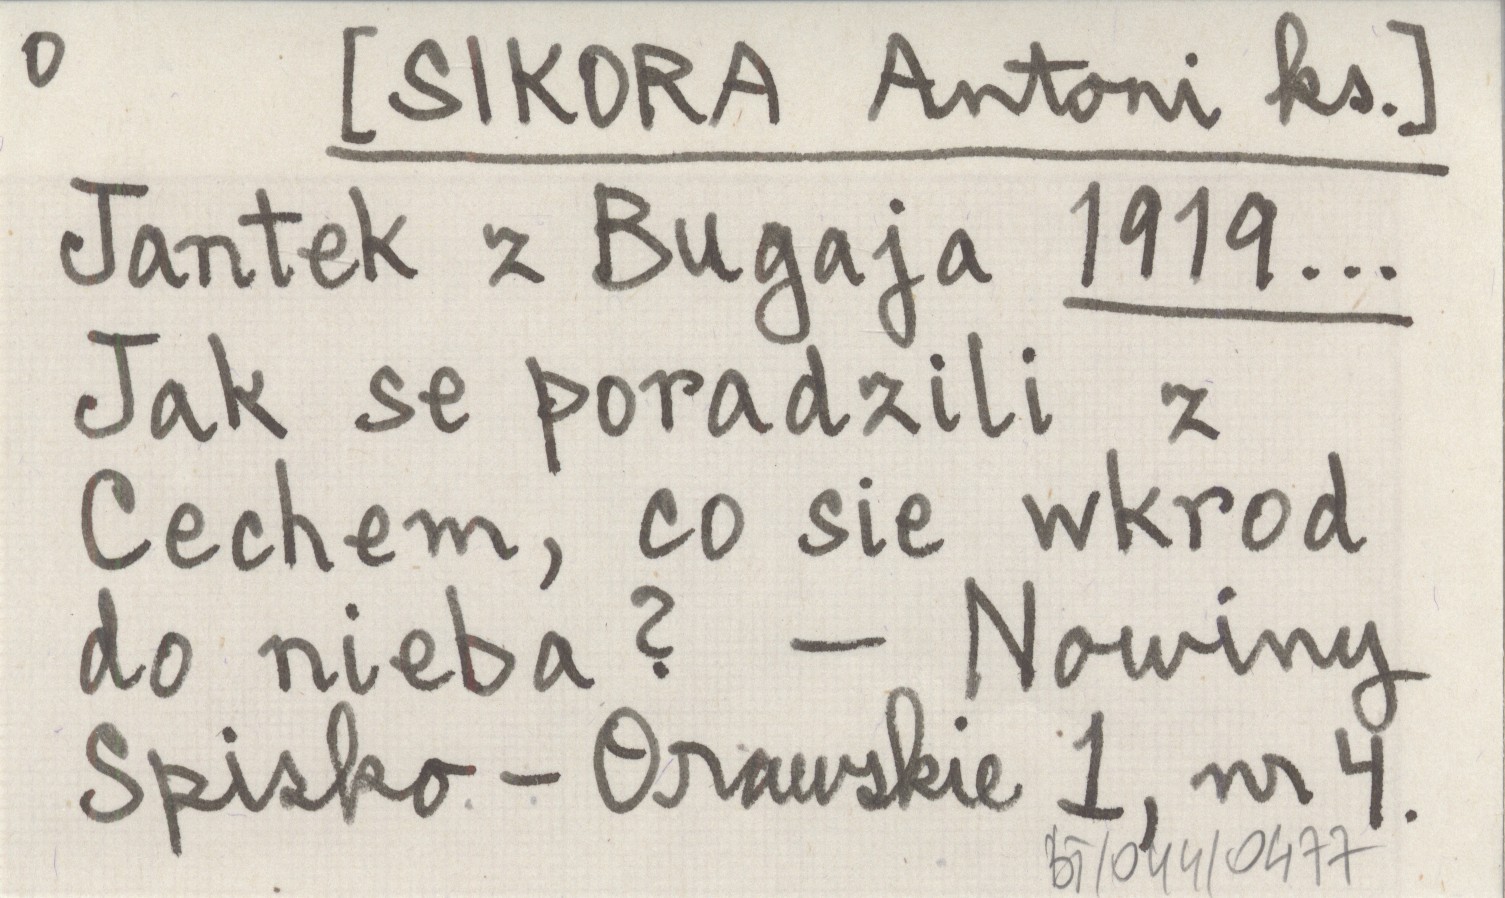 O [SIKORA Antoni ks.]
Jantek z Bugaja 1919...
Jak se poradzili z
Cechem, co sie wkrod
do nieba? – Nowiny
Spisko-Orawskie 1, nr 4.
BT/044/0477